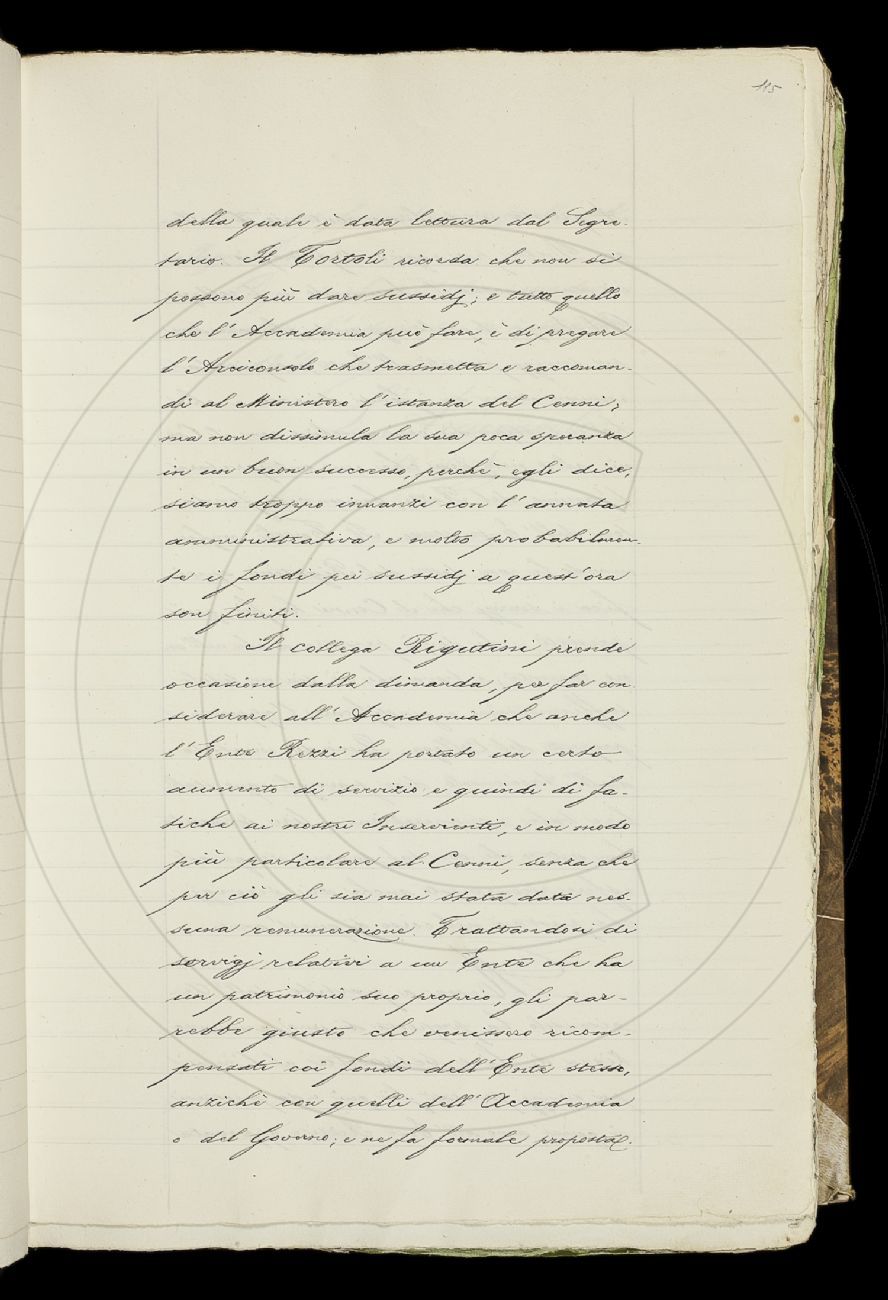 115
della quale è data lettura dal Segre-
tario. Il Tortoli ricorda che non si
possono più dare sussidj; e tutto quello
che l'Accademia può fare, è di pregare
l'Arciconsolo che trasmetta e raccoman-
di al Ministero l'istanza del Cenni;
ma non dissimula la sua poca speranza
in un buon successo, perchè, egli dice,
siamo troppo innanzi con l'annata
amministrativa, e molto probabilmen-
te i fondi pei sussidj a quest'ora
son finiti.
Il collega Rigutini prende
occasione dalla dimanda, per far con
siderare all'Accademia che anche
l'Ente Rezzi ha portato un certo
aumento di servizio e quindi di fa-
tiche ai nostri Inservienti, e in modo
più particolare al Cenni, senza che
per ciò gli sia mai stata data nes-
suna remunerazione. Trattandosi di
servigj relativi a un Ente che ha
un patrimonio suo proprio, gli par-
rebbe giusto che venissero ricom-
pensati coi fondi dell'Ente stesso,
anzichè con quelli dell'Accademia
o del Governo; e ne fa formale proposta.